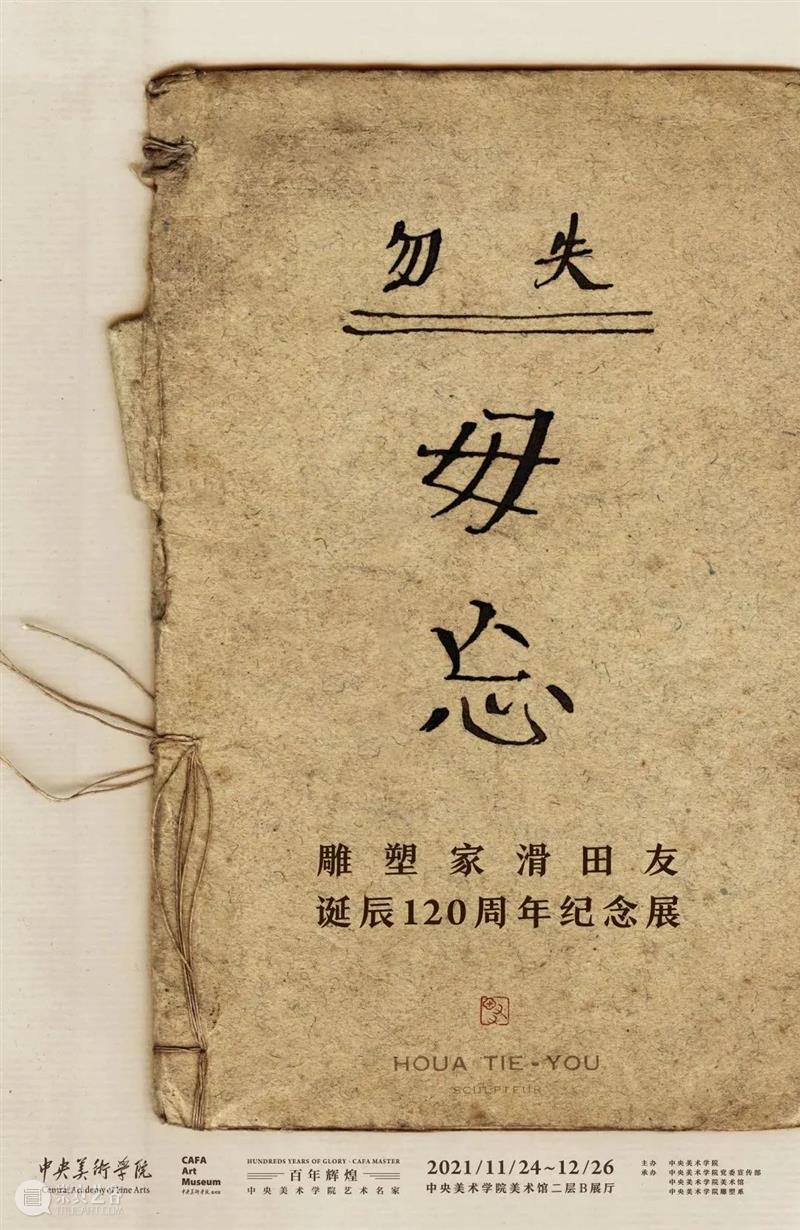 勿 失
毋
忘
雕塑家滑田友
诞辰120周年纪念展
HOUA TIE-YOU
SCULPTEUR
中央美術学院
Central Academy of Fine Arts
CAFA
Art
Museum
中央美術学院 美术馆
HUNDREDS YEARS OF GLORY · CAFA MASTER
百年辉煌
中央美术学院艺术名家
2021/11/24~12/26
中央美术学院美术馆二层B展厅
主办 中央美术学院
承办 中央美术学院党委宣传部
中央美术学院美术馆
中央美术学院雕塑系